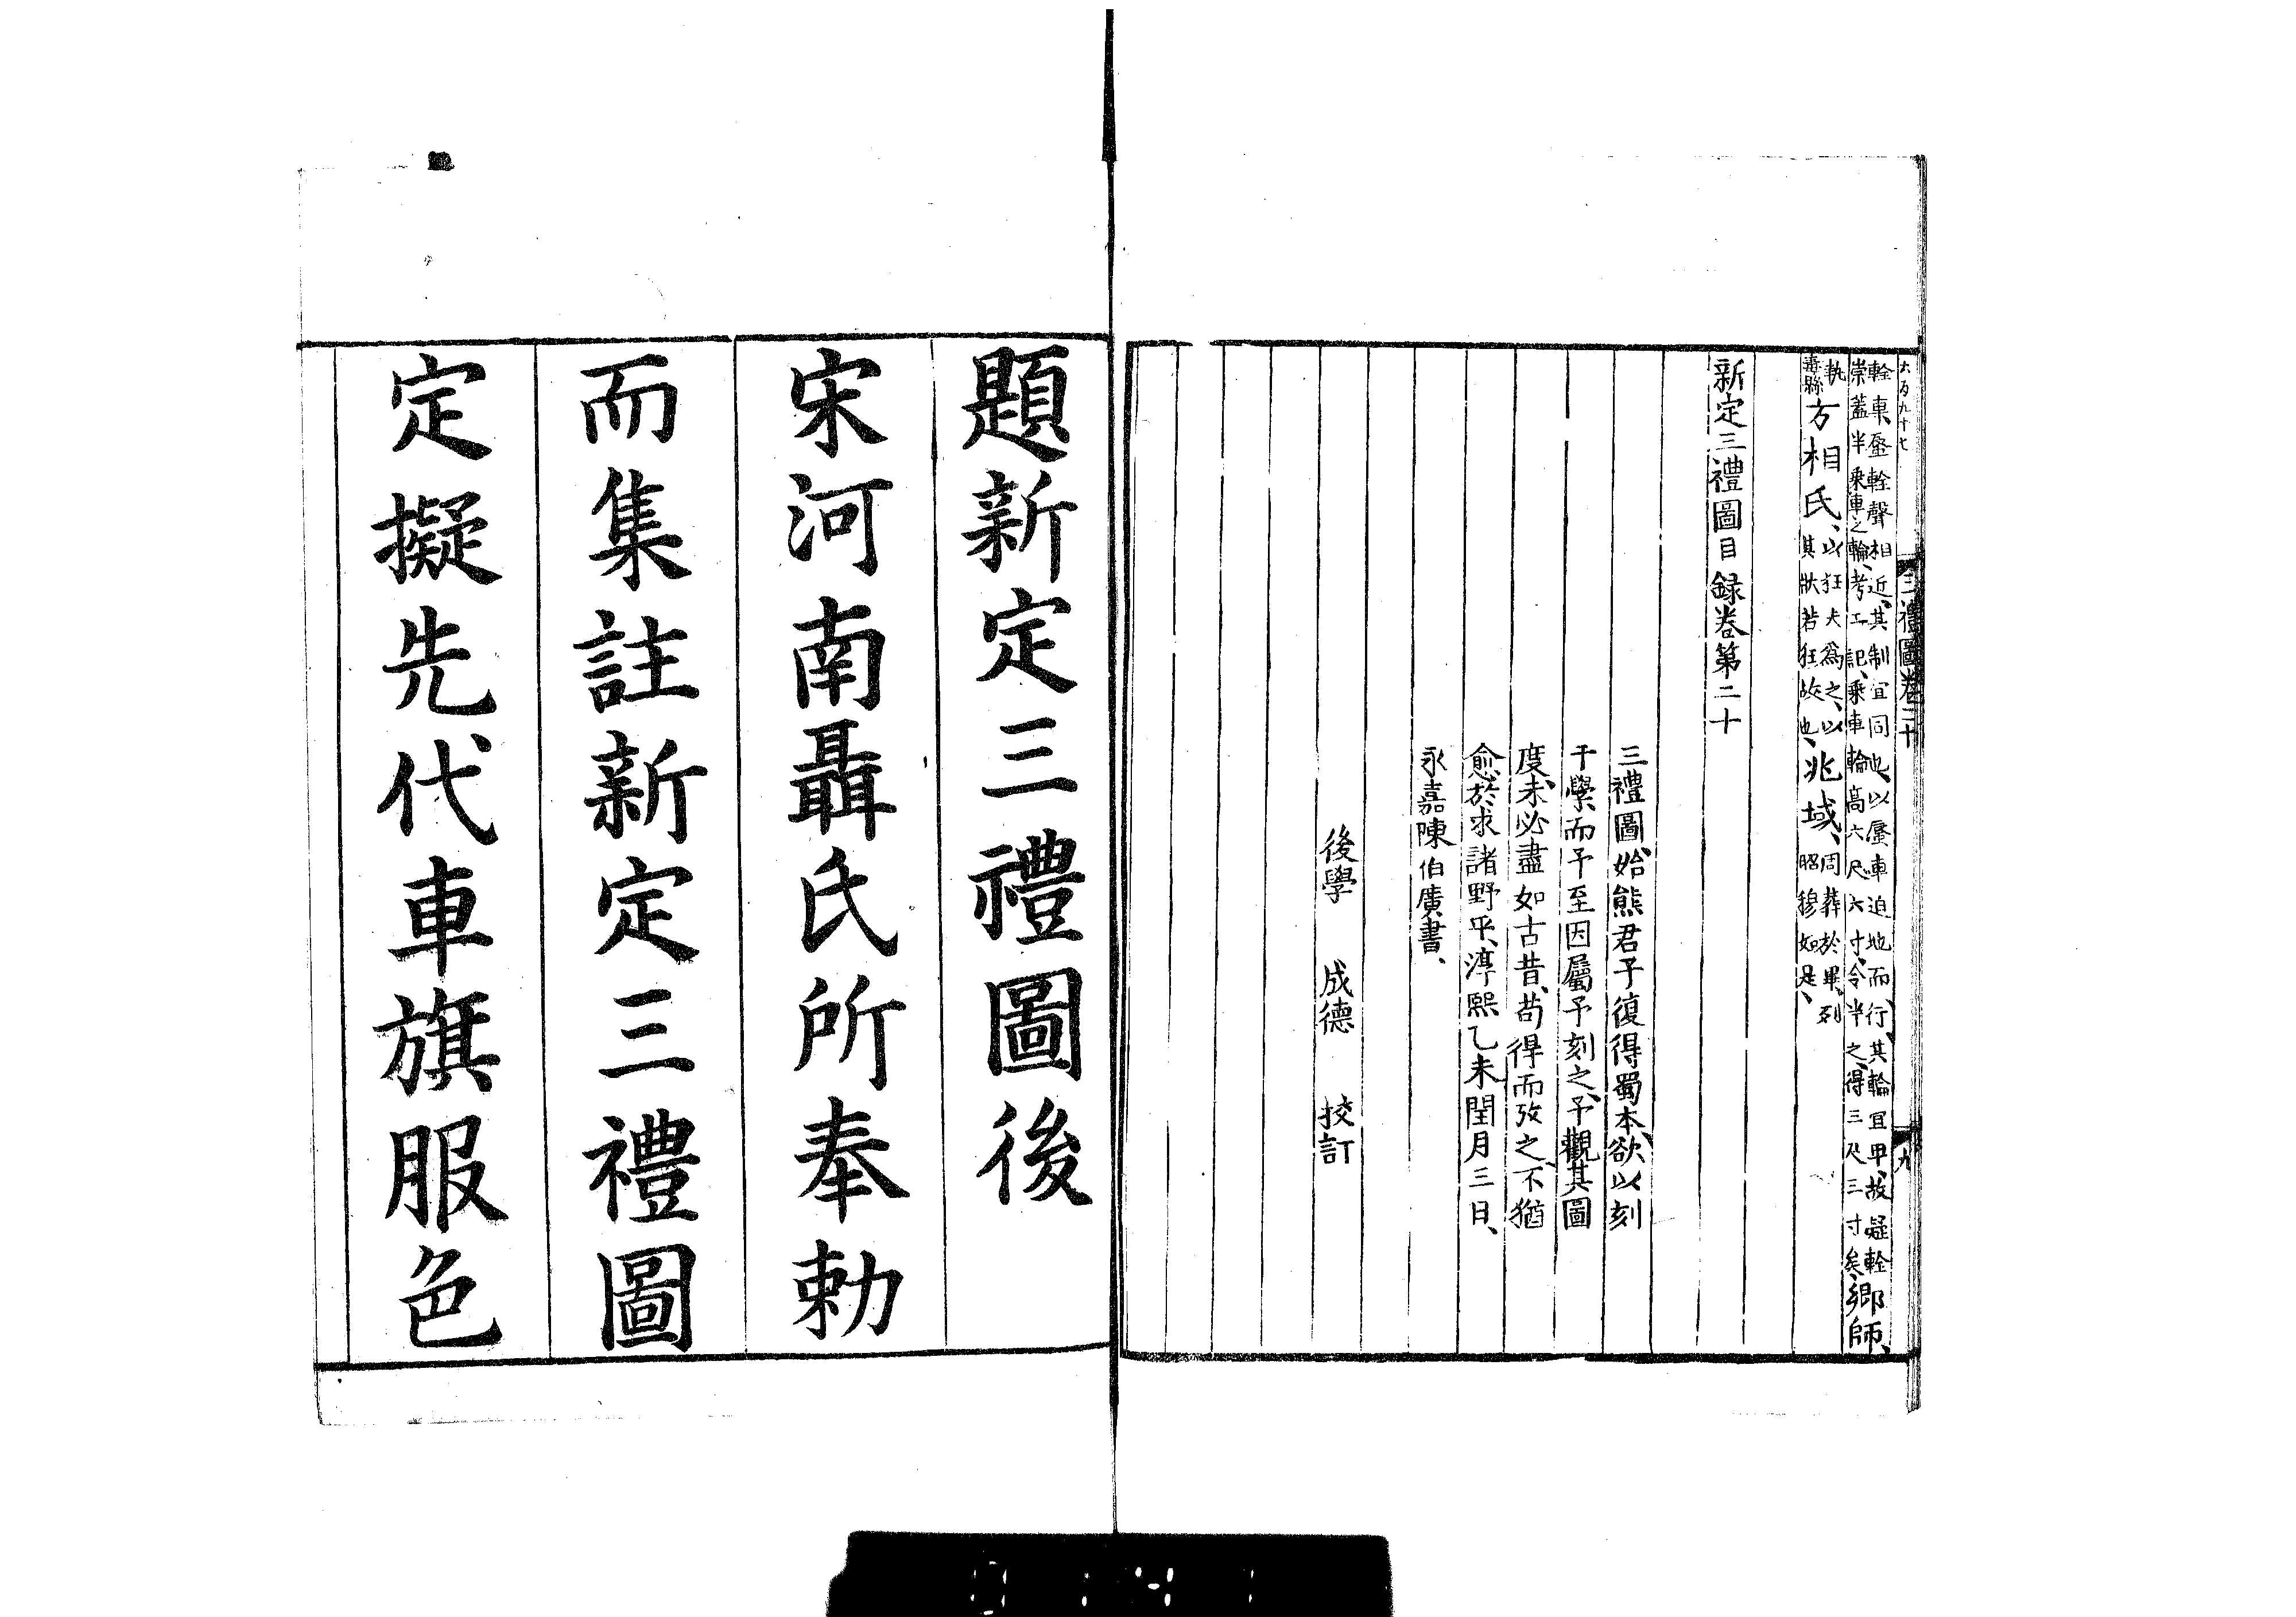 輇車、蜃輇聲相近、其制宜同也、以蜃車迫地而行、其輪宜卑、故疑輇
崇蓋半乘車之輪、考工記、乘車輪高六尺六寸、令半之、得三尺三寸矣、鄉師、
執
纛縣
方相氏、以狂夫爲之、以
其狀若狂故也、
兆域、周葬於畢、列
昭穆如是、
新定三禮圖目録卷第二十
三禮圖、始熊君子復得蜀本、欲以刻
于學、而予至因屬予刻之、予觀其圖
度、未必盡如古昔、苟得而攷之、不猶
愈於求諸野乎、淳熙乙未閏月三日、
永嘉陳伯廣書、
後學 成德 挍訂
題新定三禮圖後
宋河南聶氏所奉勅
而集註新定三禮圖
定擬先代車旗服色
三禮圖卷二十
九